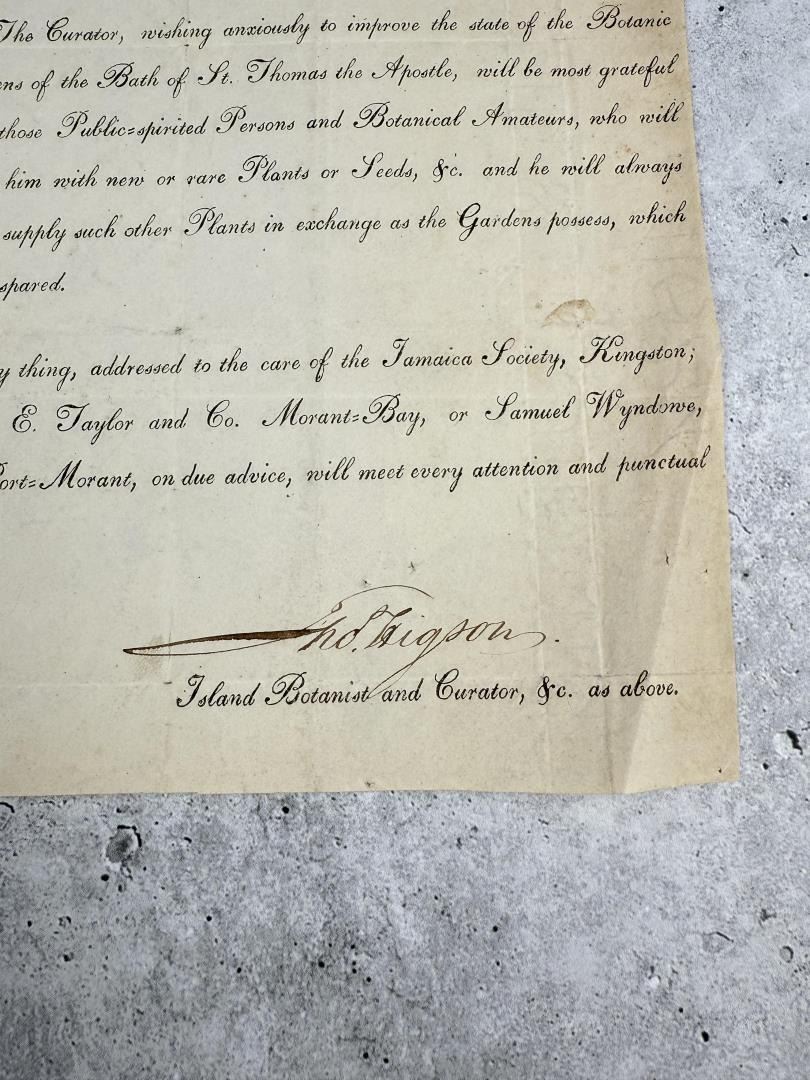 The Curator, wishing anxiously to improve the state of the Botanic
ens of the Bath of St. Thomas the Apostle, will be most grateful
those Public=spirited Persons and Botanical Amateurs, who will
him with new or rare Plants or Seeds, &c. and he will always
supply such other Plants in exchange as the Gardens possess, which
spared.
y thing, addressed to the care of the Jamaica Society, Kingston;
E. Taylor and Co. Morant=Bay, or Samuel Wyndowe,
Port=Morant, on due advice, will meet every attention and punctual
Thos. Higson.
Island Botanist and Curator, &c. as above.